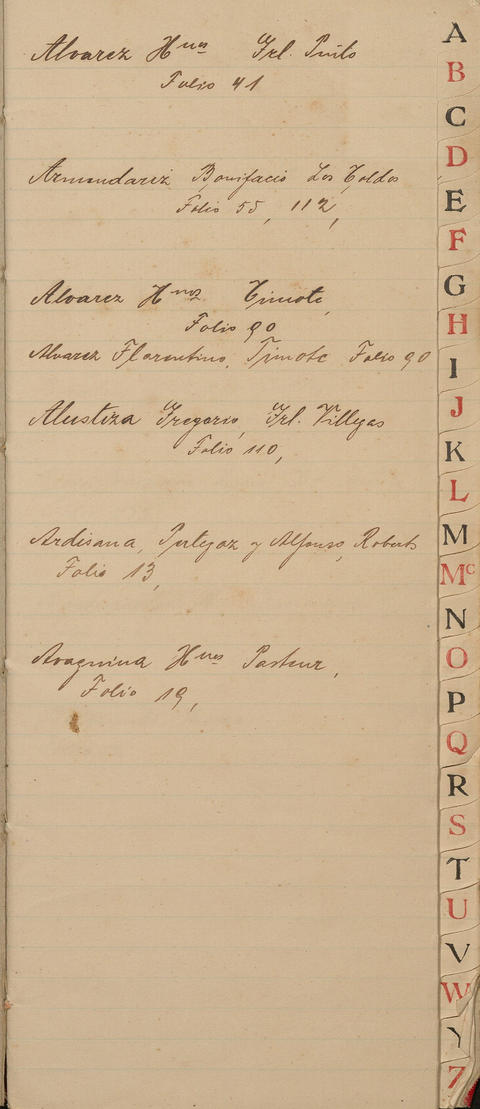 Alvarez Hnos Grl. Pinto
Folio 41
Armendariz Bonifacio Los Toldos
Folio 55, 112,
Alvarez Hnos Timote,
Folio 90
Alvarez Florentino, Timote Folio 90
Alustiza Gregorio, Grl. Villegas
Folio 110,
Ardisana, Pertegaz y Alfonso, Roberts
Folio 13,
Aragnina Hnos Pasteur,
Folio 19,
A
B
C
D
E
F
G
H
I
J
K
L
M
Mc
N
O
P
Q
R
S
T
U
V
W
Y
Z